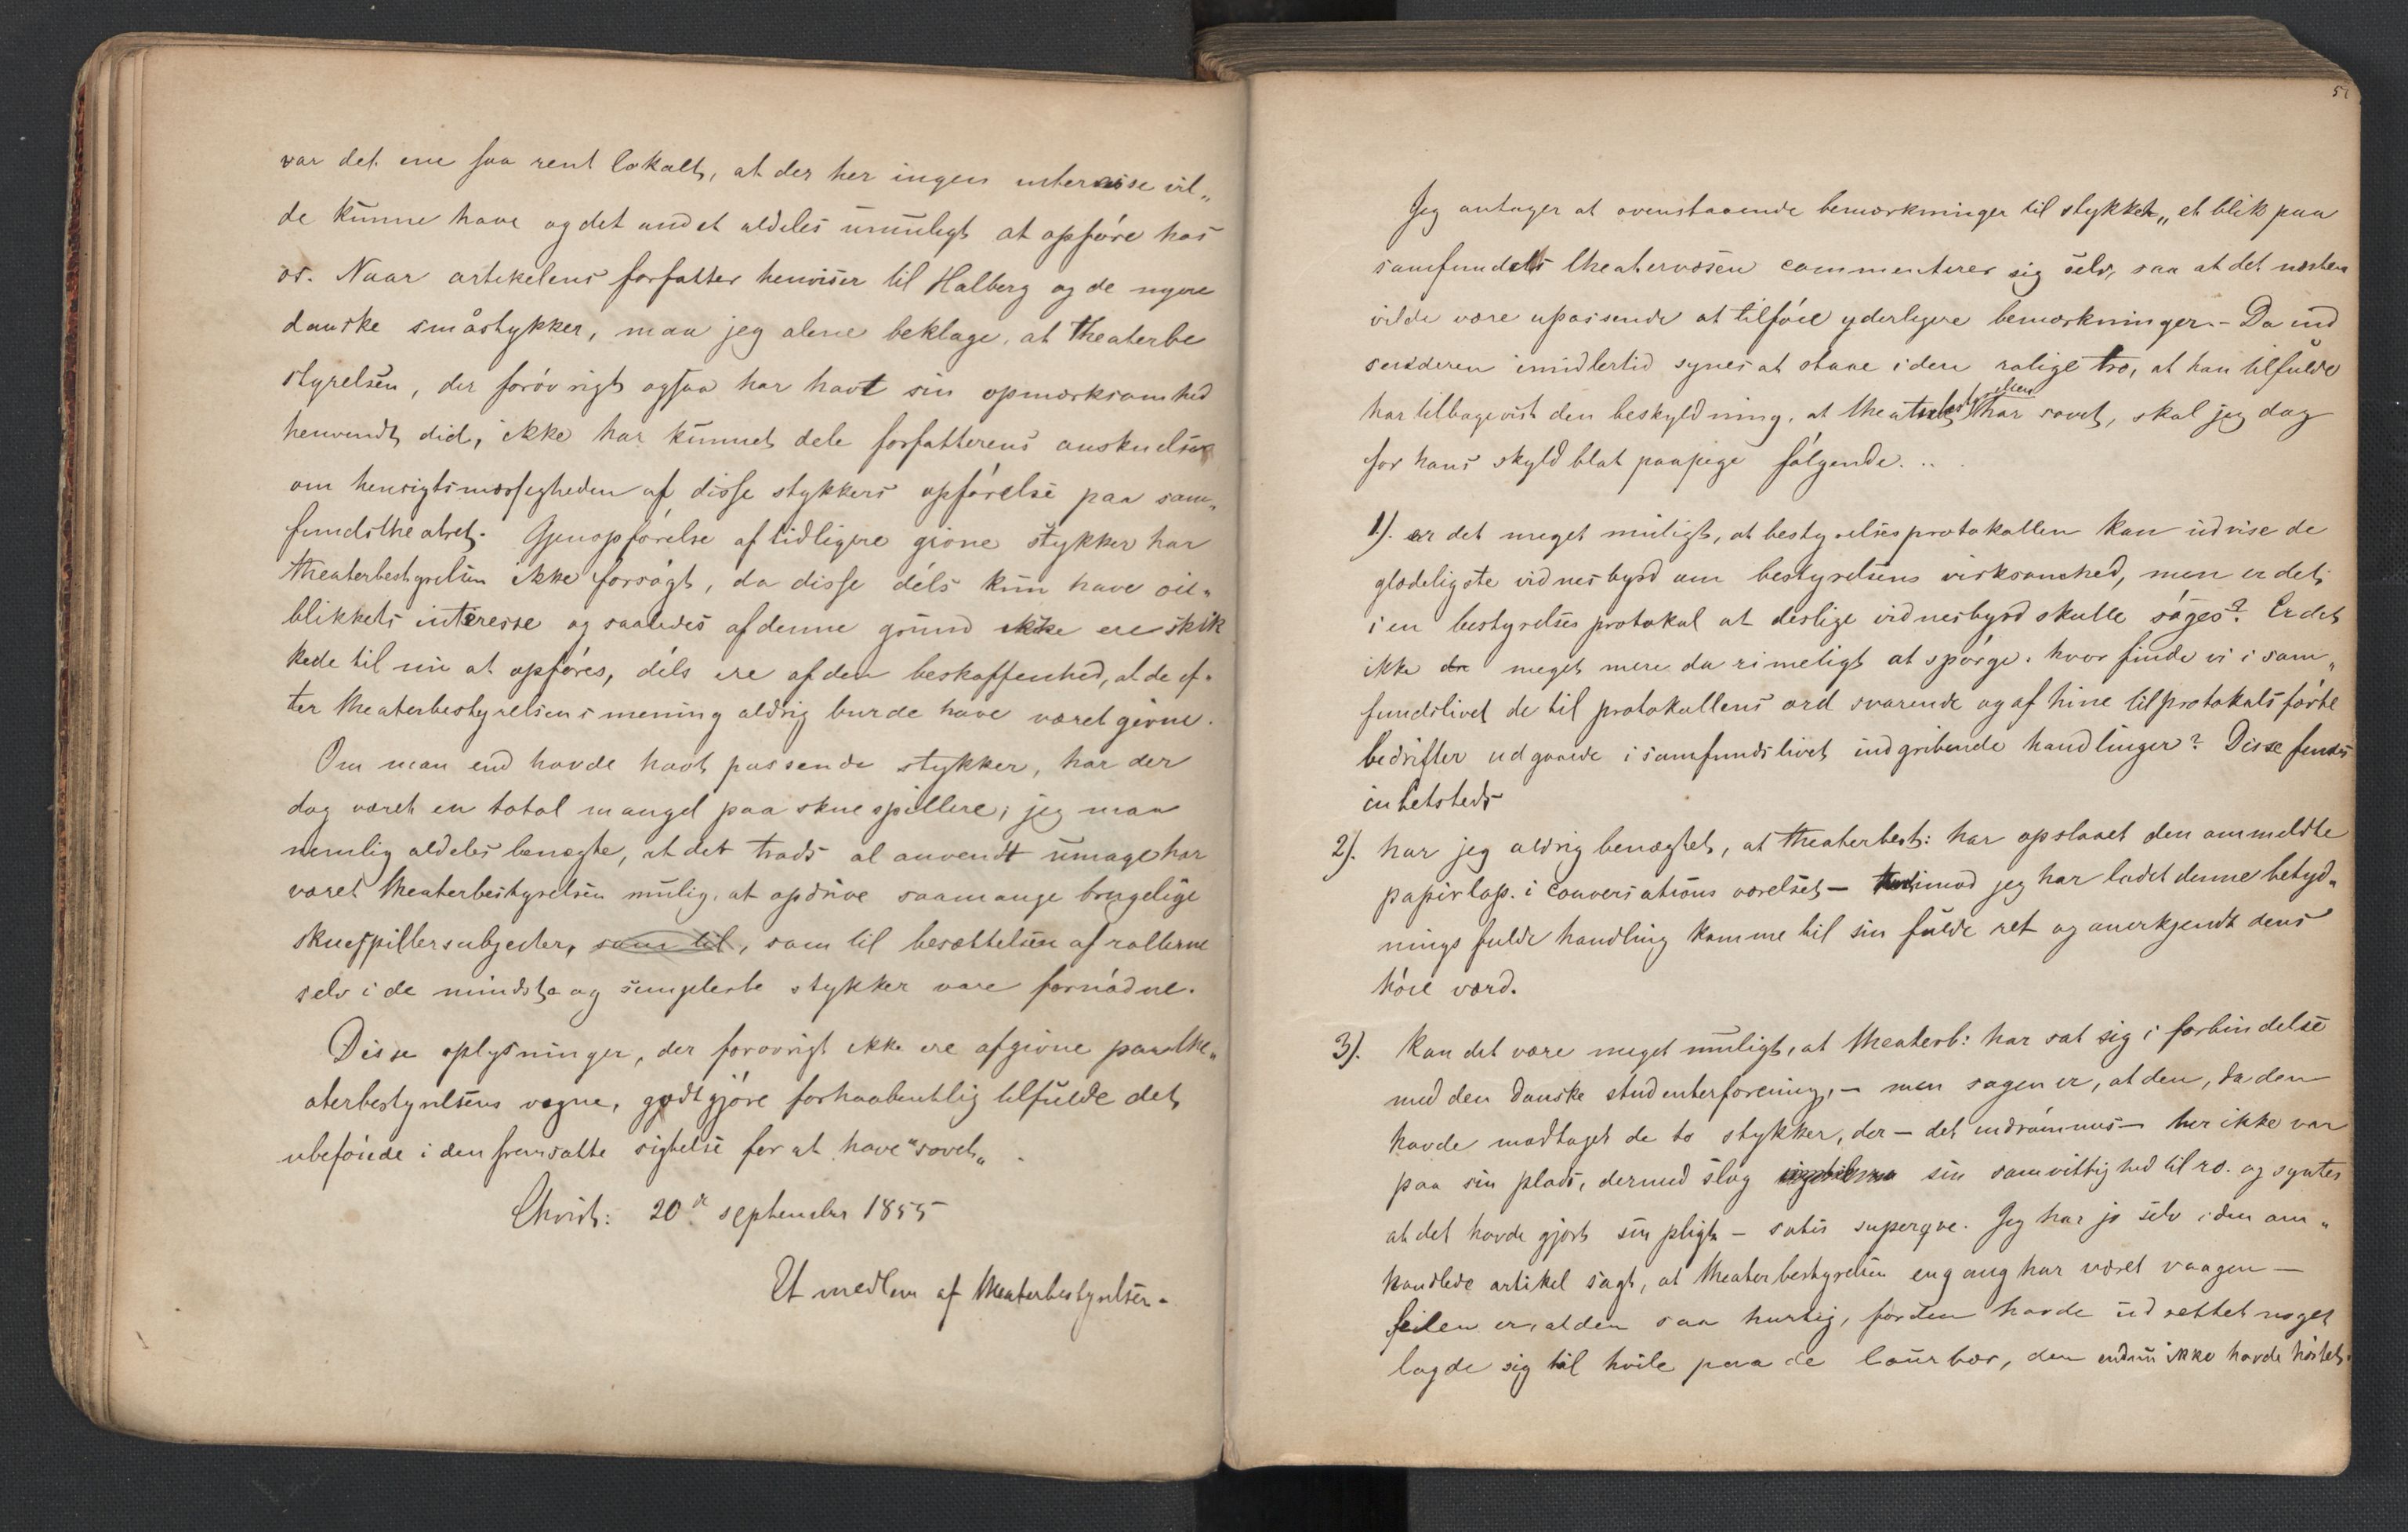 var det ene saa rent lokalt, at der her ingen interesse vil„
de kunne have og det andet aldeles umuligt at opføre hos
os. Naar artikelens forfatter henviser til Holberg og de nyere
danske småstykker, maa jeg alene beklage, at theaterbe
styrelsen, der forøvrigt ogsaa har havt sin opmærksomhed
henvendt did, ikke har kunnet dele forfatterens anskuelse
om hensigtsmæssigheden af disse stykkers opførelse paa sam„
fundstheatret. Gjenopførelse af tidligere givne stykker har
theaterbestyrelsen ikke forsøgt, da disse déls kun have øie„
blikkets interesse og saaledes af denne grund ikke ere skik
kede til nu at opføres, déls ere af den beskaffenhed, at de ef„
ter theaterbestyrelsens mening aldrig burde have været givne.
Om man end havde havt passende stykker, har der
dog været en total mangel paa skuespillere; jeg maa
nemlig aldeles benægte, at det trods al anvendt umage har
været theaterbestyrelsen mulig, at opdrive saamange brugelige
skuespillersubjecter, som til, som til besættelsen af rollerne
selv i de mindste og simpleste stykker vare fornødne.
Disse oplysninger, der forøvrigt ikke ere afgivne paa the„
aterbestyrelsens vegne, godtgjøre forhaabentlig tilfulde det
ubeføiede i den fremsatte sigtelse for at have "sovet„
Christ: 20de september 1855
Et medlem af theaterbestyrelsen.
Jeg antager at ovenstaaende bemærkninger til stykket „et blik paa
samfundets theatervæsen commenterer sig selv, saa at det næsten
vilde være upassende at tilføie yderligere bemærkninger. - Da ind
senderen imidlertid synes at staae i den rolige tro, at han tilfulde
har tilbagevist den beskyldning, at theaterbestyrelsen har sovet, skal jeg dog
for hans skyld blot paapege følgende...
1). er det meget muligt, at bestyrelsesprotokollen kan udvise de
glædeligste vidnesbyrd om bestyrelsens virksomhed, men er det
i en bestyrelsesprotokol at deslige vidnesbyrd skulle søges? Er det
ikke da meget mere da rimeligt at spørge: hvor finde vi i sam„
fundslivet de til protokollens ord svarende og af hine til protokols førte
bedrifter udgaaede i samfundslivet indgribende handlinger? Disse findes
intetsteds
2). har jeg aldrig benægtet, at theaterbest: har opslaaet den ommeldte
papirlap i conversationsværelset — tvertimod jeg har ladet denne betyd„
ningsfulde handling komme til sin fulde ret og anerkjendt dens
høie værd.
3). kan det være meget muligt, at theaterb: har sat sig i forbindelse
med den danske studenterforening, — men sagen er, at den, da den
havde modtaget de to stykker, der — det indrømmes — her ikke var
paa sin plads, dermed slog sin samvittighed til ro. og syntes
at det havde gjort sin pligt — satis superqve. Jeg har jo selv i den om„
handlede artikel sagt, at theaterbestyrelsen engang har været vaagen —
feilen er, at den saa hurtig, før den havde udrettet noget
lagde sig til hvile paa de laurbær, den endnu ikke havde høstet.